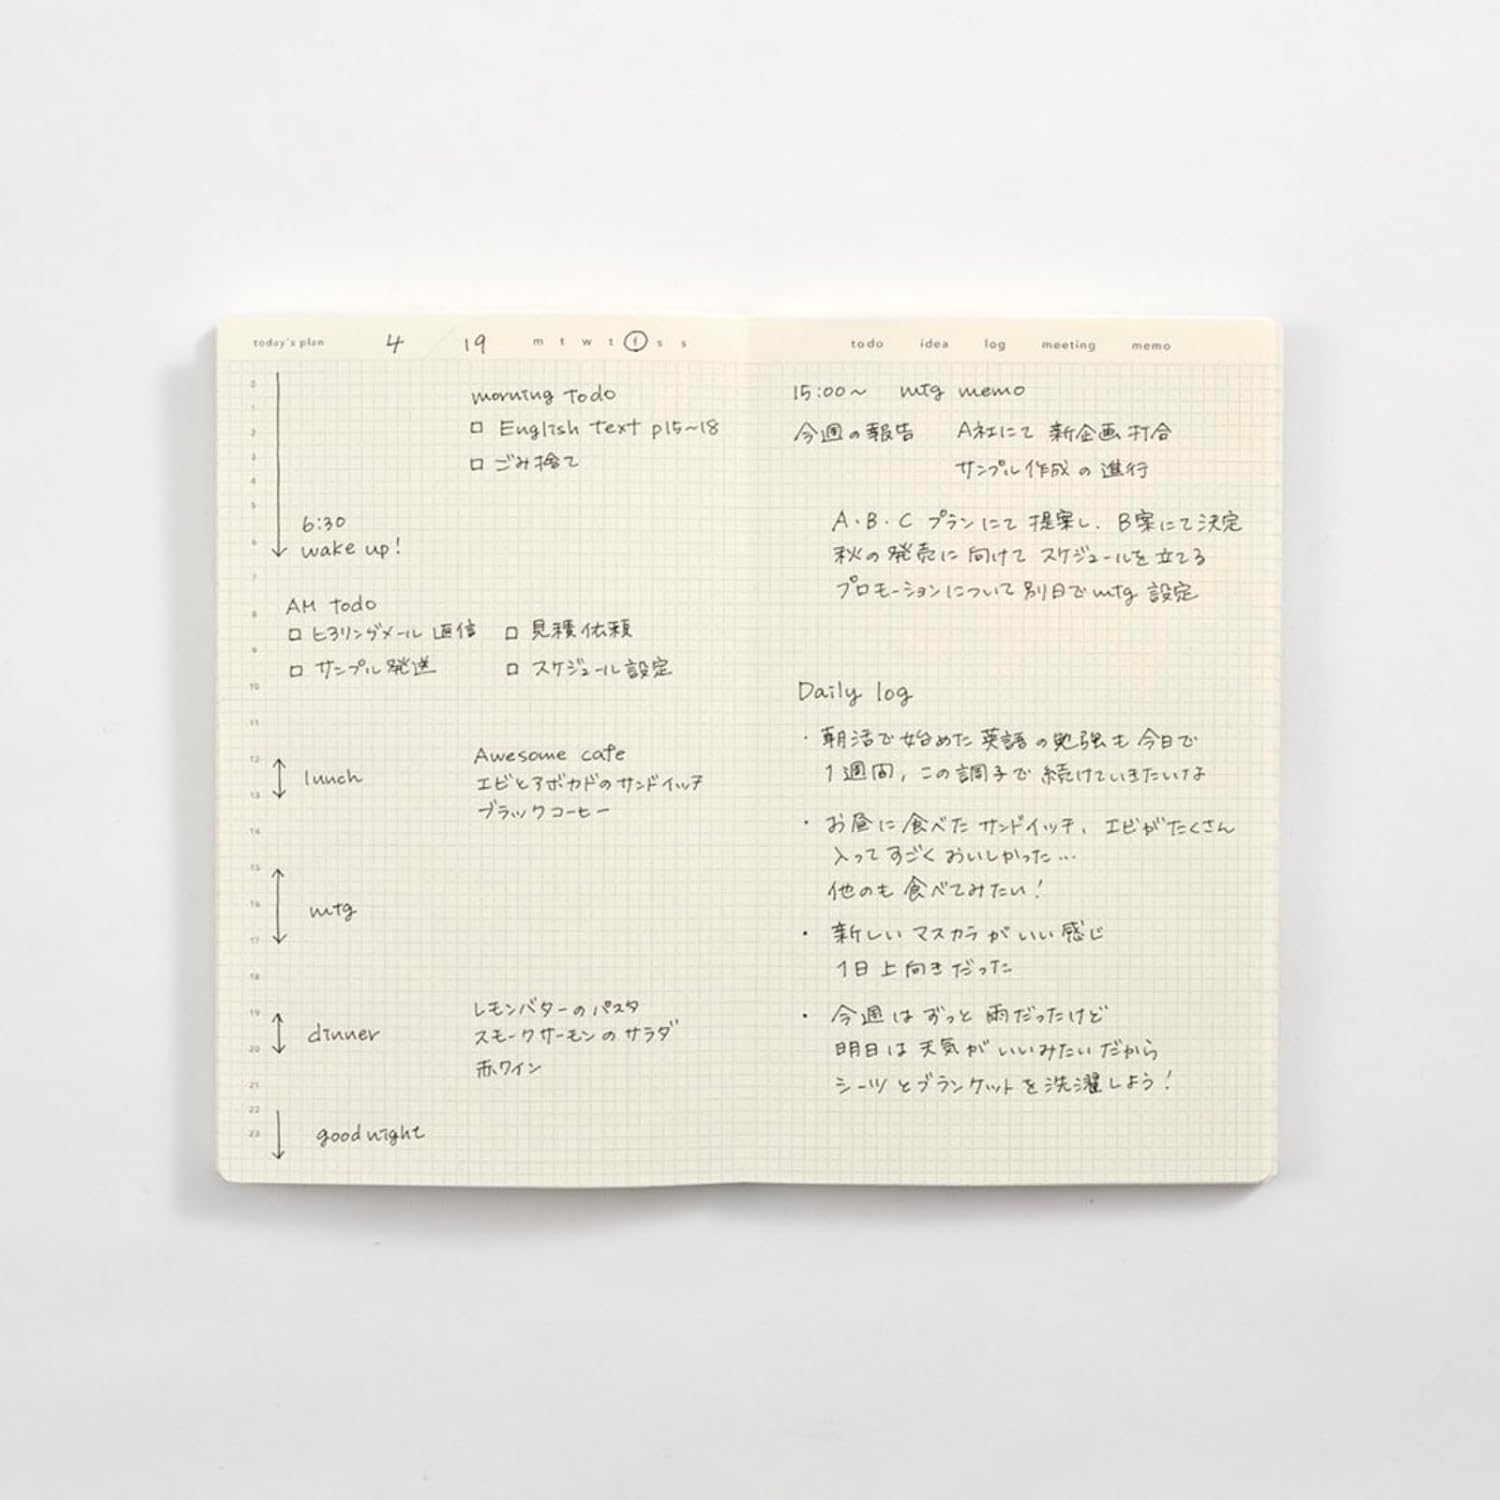 today's plan 4 19 m t w t f s s
0
1
2
3
4
5
6
7
8
9
10
11
12
13
14
15
16
17
18
19
20
21
22
23
morning todo
□ English text p15~18
□ ごみ捨て
6:30
wake up!
AM todo
□ ヒヨリングメール 返信 □ 見積依頼
□ サンプル発送 □ スケジュール設定
lunch
Awesome cafe
エビとアボカドのサンドイッチ
ブラックコーヒー
mtg
dinner
レモンバターのパスタ
スモークサーモンのサラダ
赤ワイン
good night
todo idea log meeting memo
15:00~ mtg memo
今週の報告 A社にて 新企画打合
サンプル作成の進行
A・B・C プランにて提案し、B案にて決定
秋の発売に向けてスケジュールを立てる
プロモーションについて別日でmtg 設定
Daily log
・朝活で始めた英語の勉強も今日で
1週間, この調子で続けていきたいな
・お昼に食べたサンドイッチ、エビがたくさん
入ってすごくおいしかった…
他のも食べてみたい!
・新しいマスカラがいい感じ
1日上向きだった
・今週はずっと雨だったけど
明日は天気がいいみたいだから
シーツとブランケットを洗濯しよう!